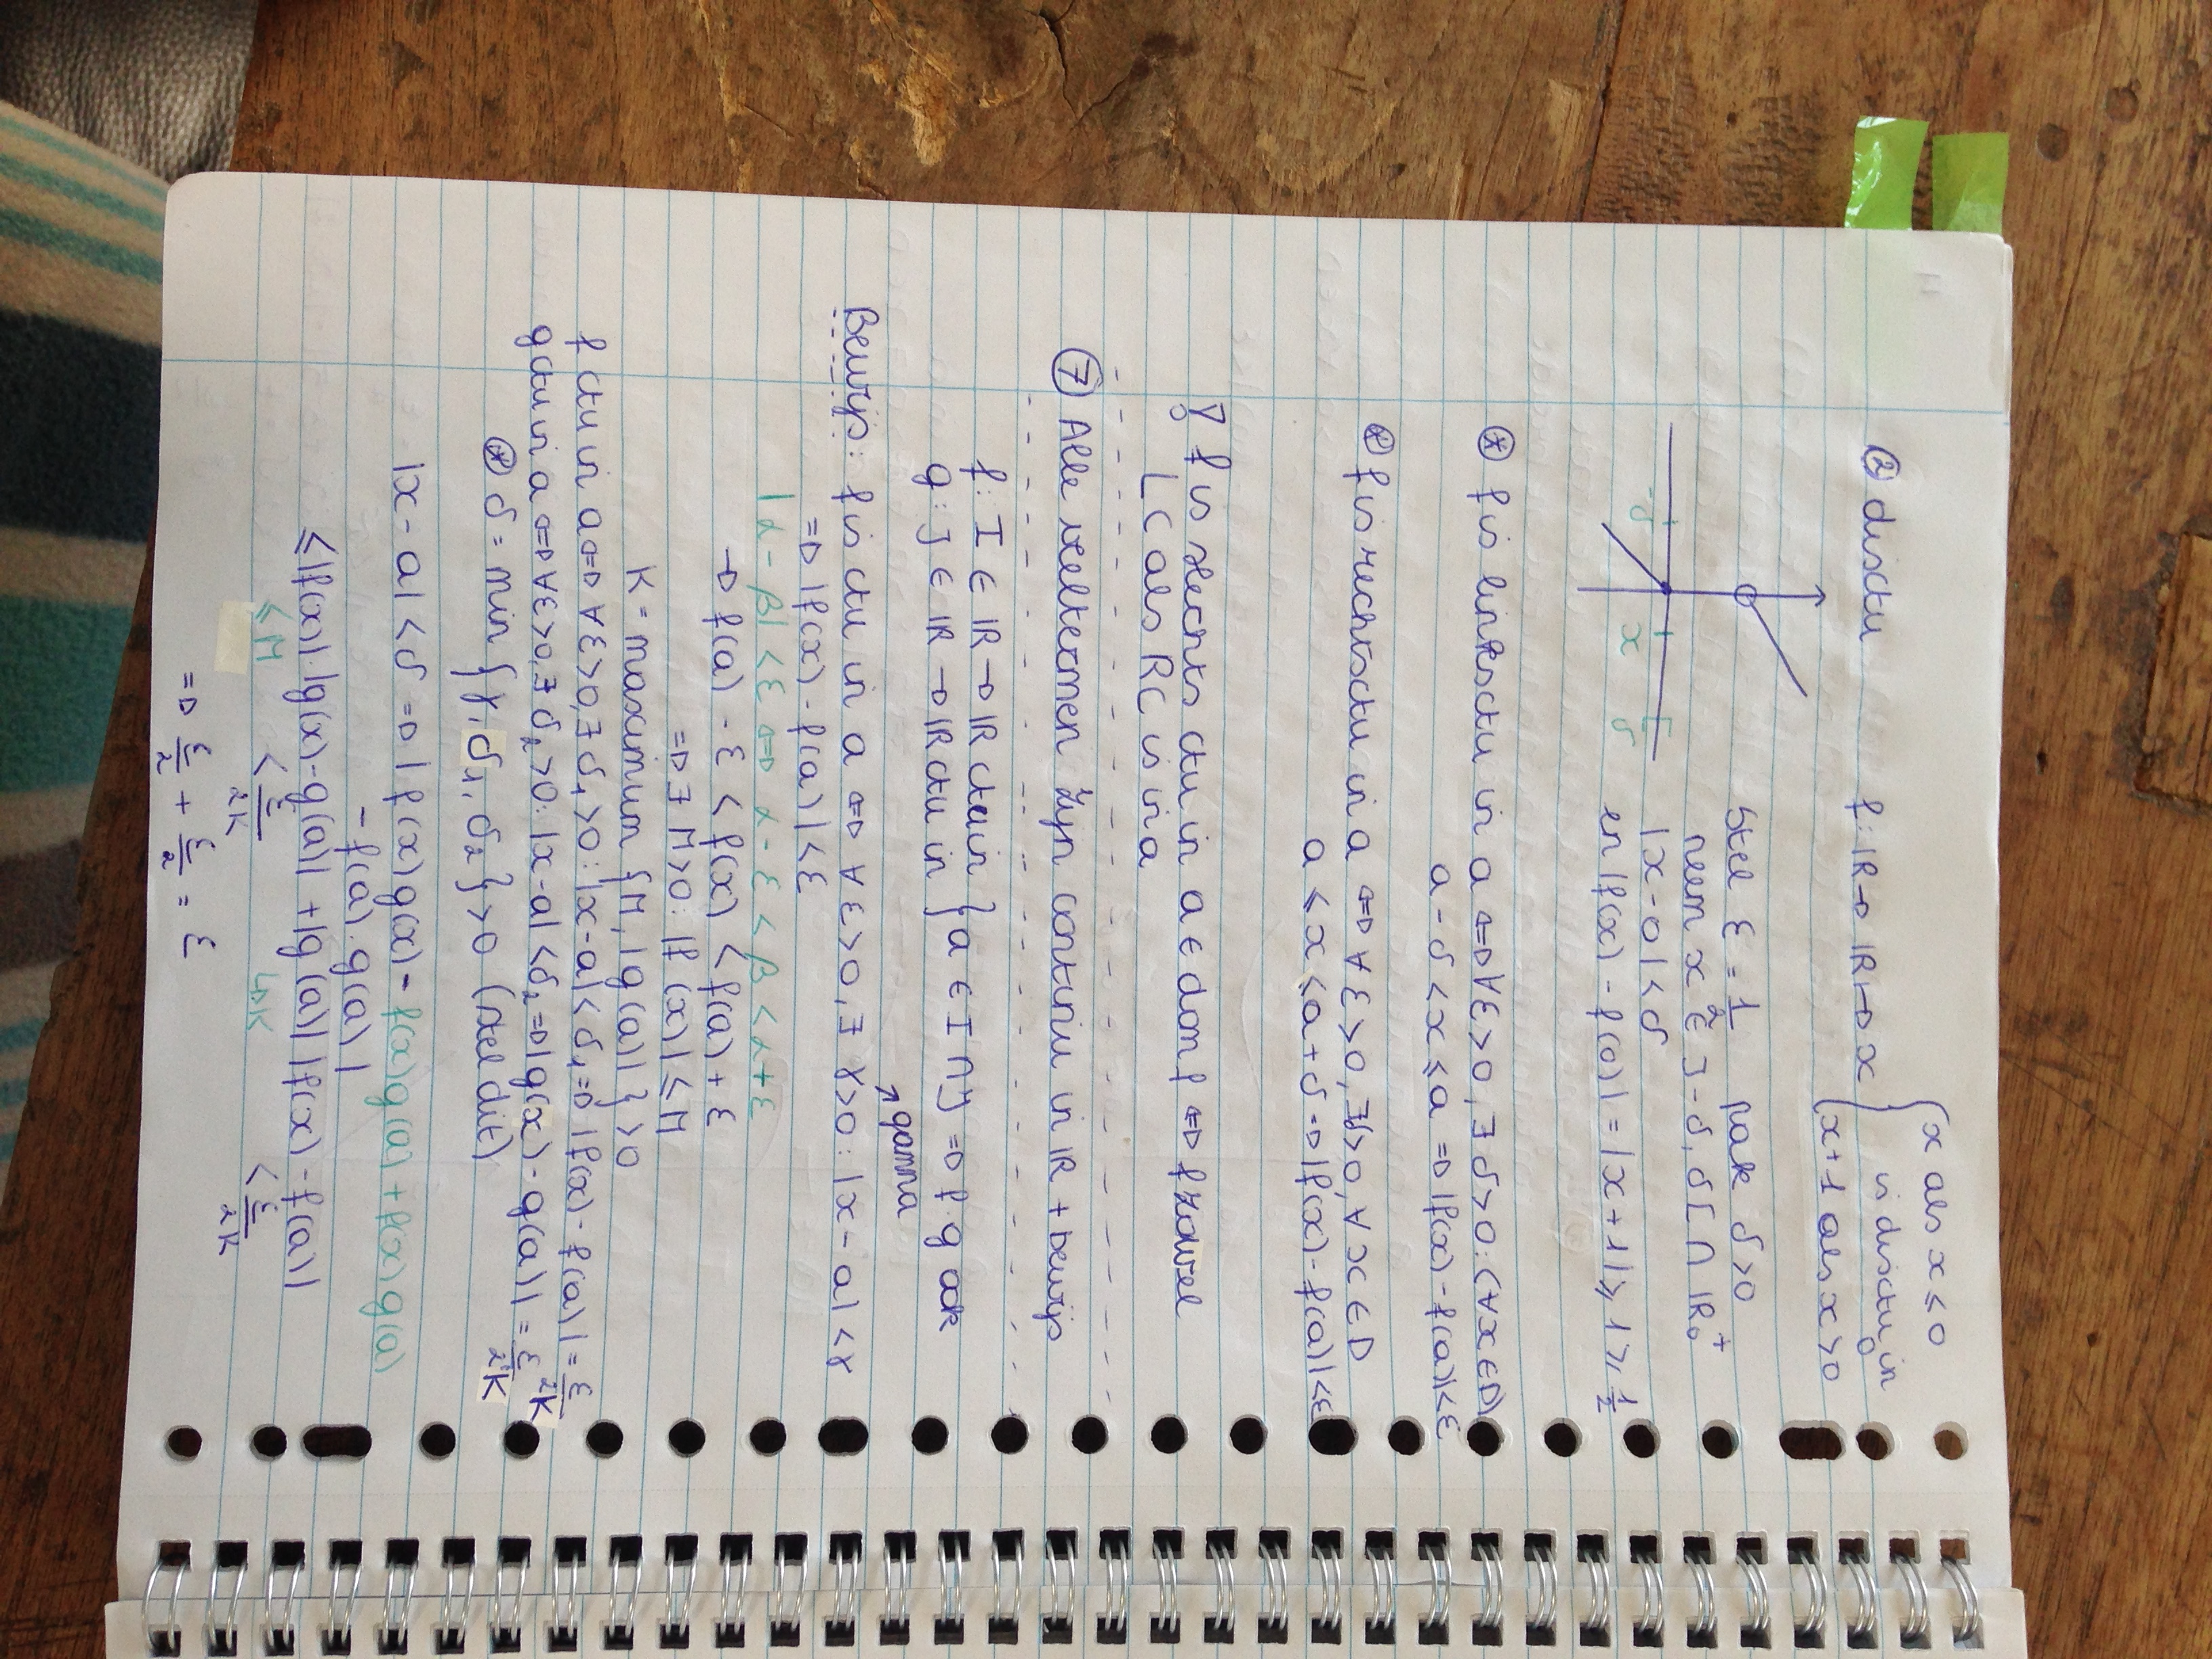 ② disctu f: ℝ→ℝ↦x { x als x ⩽ 0
is disctu in 0
x+1 als x > 0
Stel ε = 1/2 pak δ > 0
neem x ∈ ]-δ, δ[ ∩ ℝ₀⁺
-δ x δ
|x-0| < δ
en |f(x) - f(0)| = |x+1| ⩾ 1 ⩾ 1/2
⊛ f is linksctu in a ⇔ ∀ε>0, ∃δ>0: (∀x∈D)
a-δ < x ⩽ a ⇒ |f(x)-f(a)|<ε
⊛ f is rechtsctu in a ⇔ ∀ε>0, ∃δ>0, ∀x∈D
a ⩽ x ⩽ a+δ ⇒ |f(x)-f(a)|<ε
! f is slechts ctu in a ∈ dom f ⇔ f zowel
LC als RC is in a
⑦ Alle veeltermen zijn continu in ℝ + bewijs
f: I ∈ ℝ → ℝ ctu in } a ∈ I ∩ J ⇒ f.g ook
g: J ∈ ℝ → ℝ ctu in
↗ gamma
Bewijs: f is ctu in a ⇔ ∀ε>0, ∃ γ>0: |x-a| < γ
⇒ |f(x)-f(a)|<ε
|α-β| < ε ⇔ α-ε < β < α+ε
→ f(a) - ε < f(x) < f(a) + ε
⇒ ∃ M>0: |f(x)| ⩽ M
K = maximum {M, |g(a)|} > 0
f ctu in a ⇔ ∀ε>0, ∃ δ₁>0: |x-a| < δ₁ ⇒ |f(x)-f(a)| = ε/2K
g ctu in a ⇔ ∀ε>0, ∃ δ₂>0: |x-a| < δ₂ ⇒ |g(x)-g(a)| = ε/2K
⊛ δ = min {γ, δ₁, δ₂} > 0 (stel dit)
|x-a| < δ ⇒ |f(x)g(x) - f(x)g(a) + f(x)g(a)
- f(a).g(a)|
⩽ |f(x)|.|g(x)-g(a)| + |g(a)| |f(x)-f(a)|
⩽ M < ε/2K ↳K < ε/2K
⇒ ε/2 + ε/2 = ε